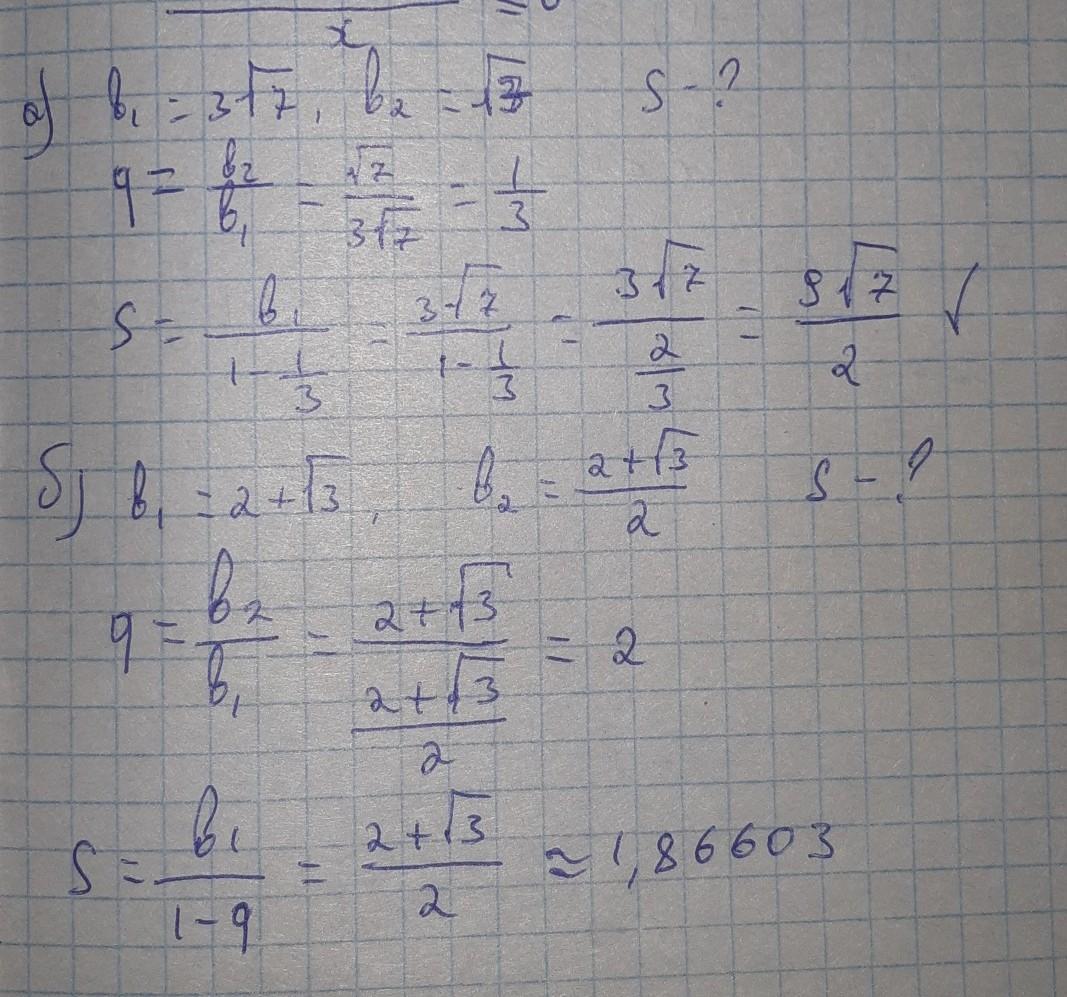 x = 0
а) b₁ = 3√7, b₂ = √7 S - ?
q = b₂/b₁ = √7/(3√7) = 1/3
S = b₁/(1 - 1/3) = 3√7/(1 - 1/3) = 3√7/(2/3) = 9√7/2 ✓
б) b₁ = 2 + √3, b₂ = (2 + √3)/2 S - ?
q = b₂/b₁ = (2 + √3)/((2 + √3)/2) = 2
S = b₁/(1 - q) = (2 + √3)/2 ≈ 1,86603